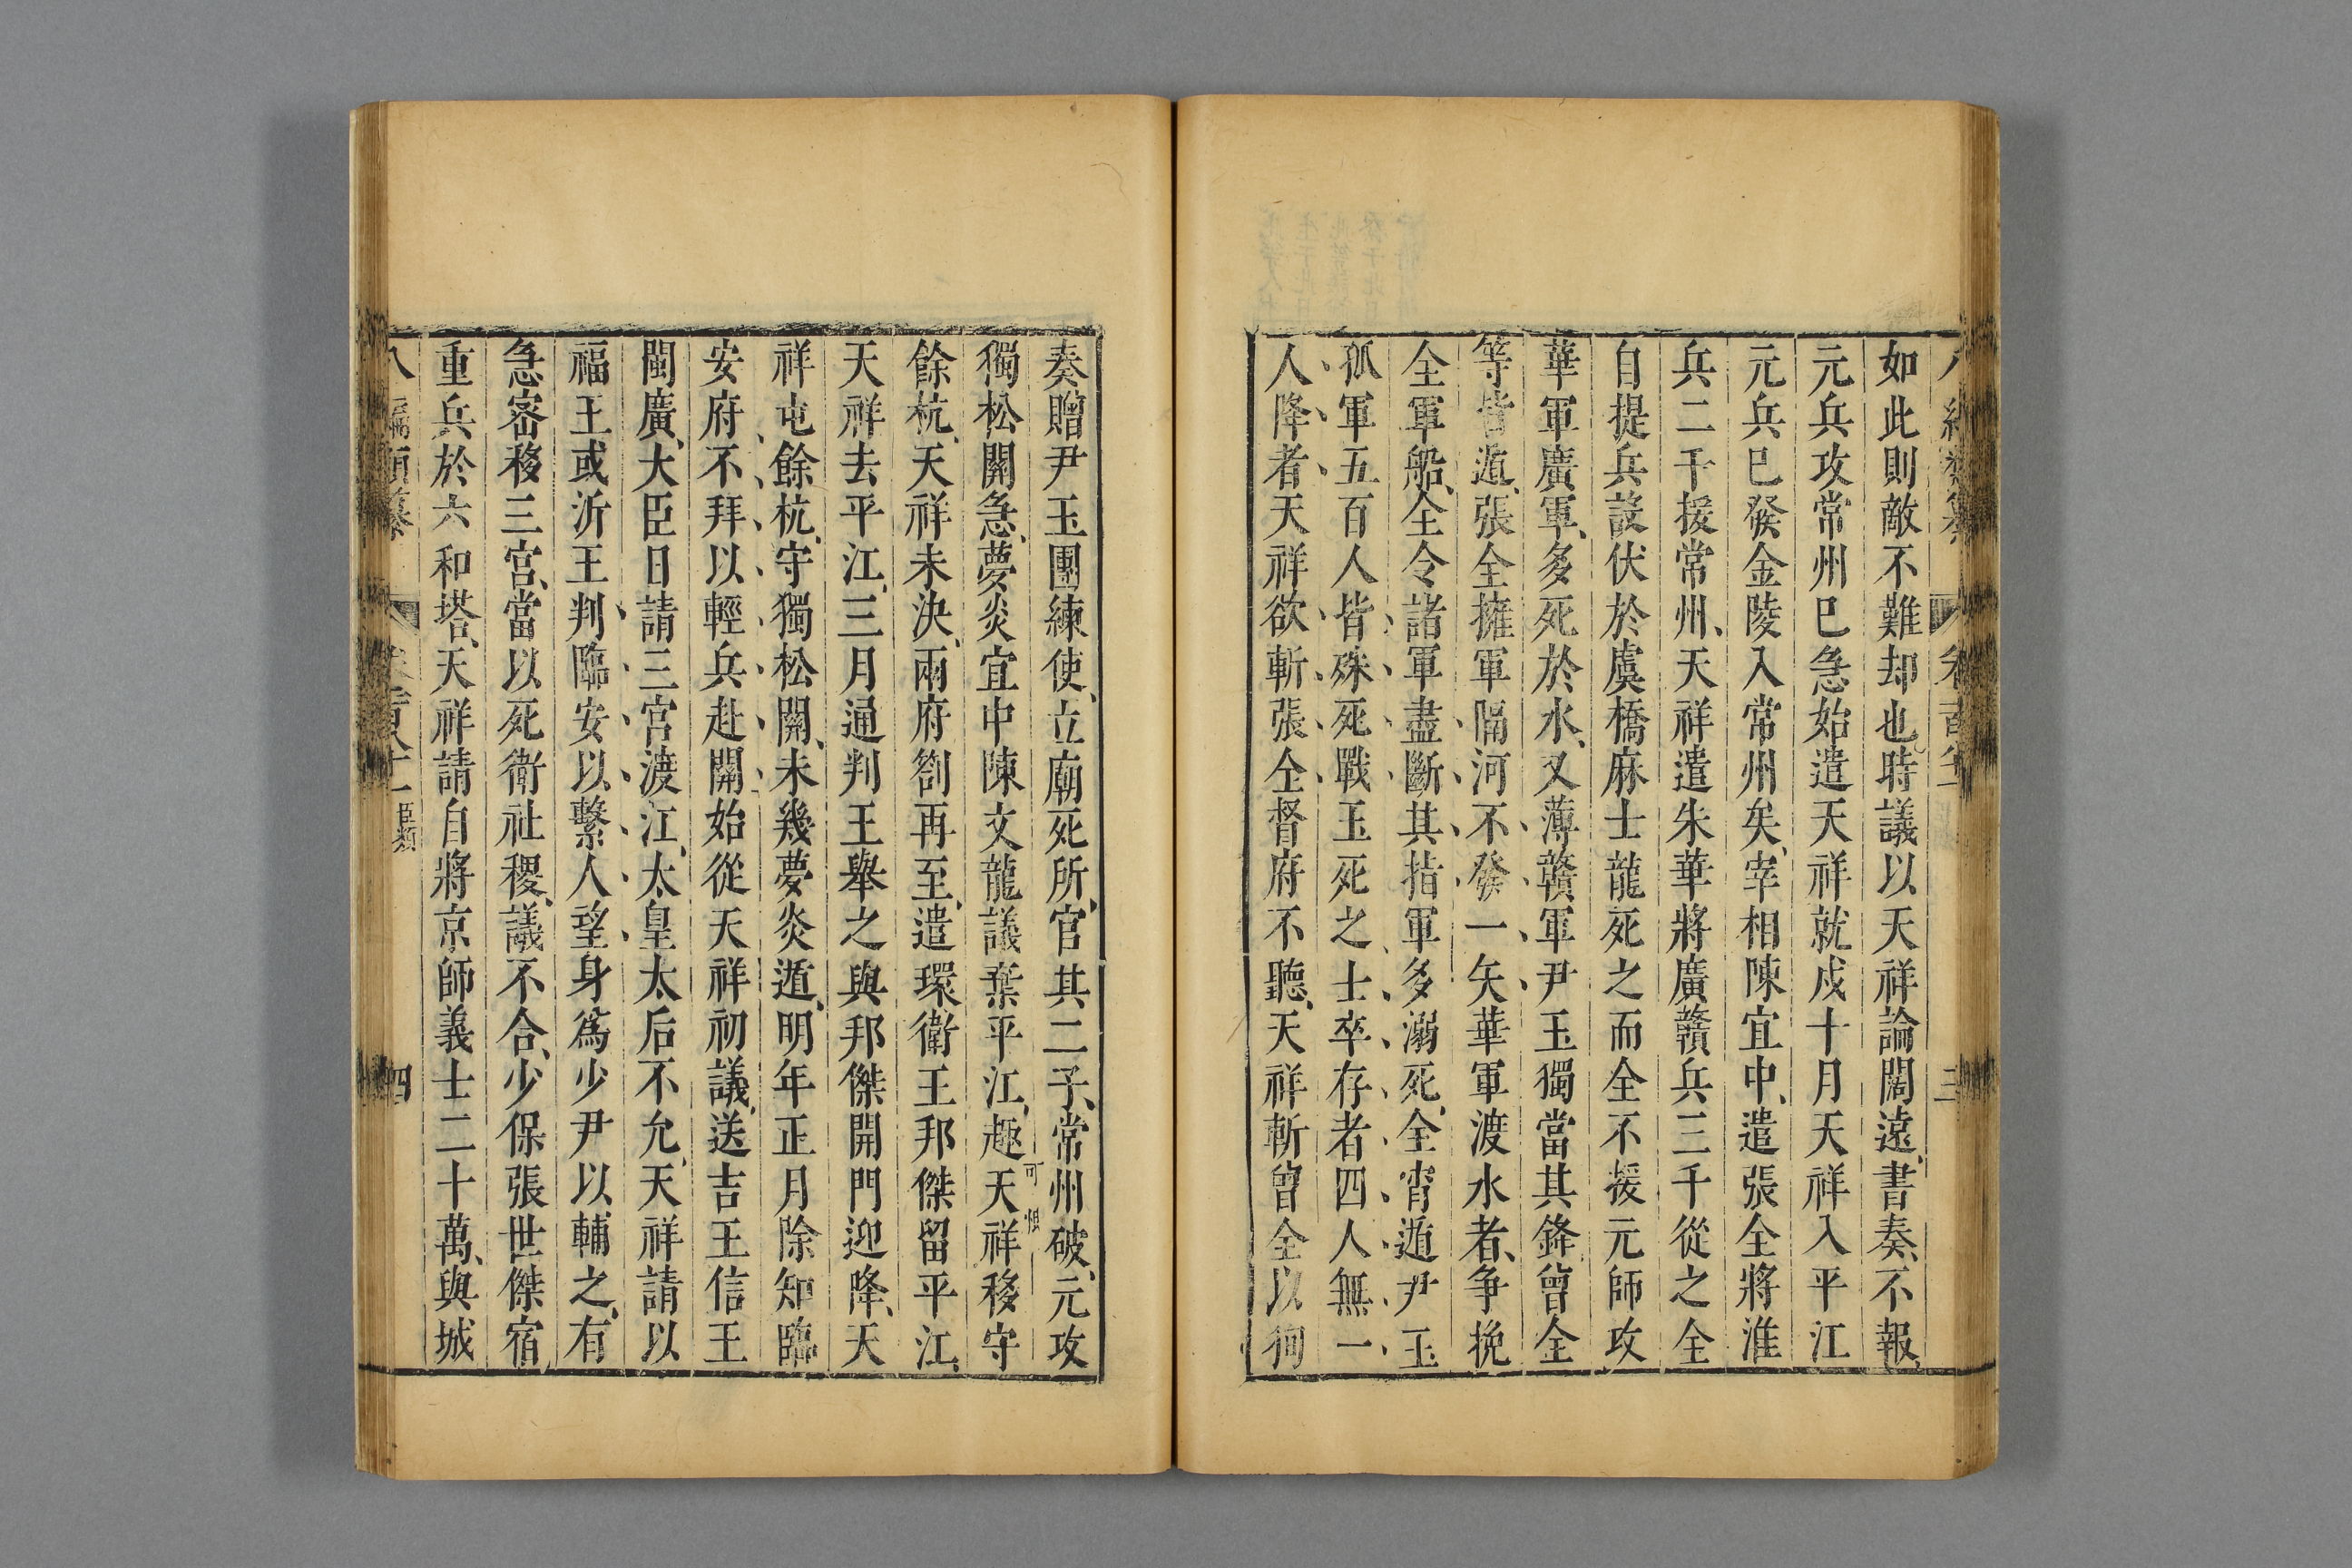 如此則敵不難却也時議以天祥論闊遠書奏不報
元兵攻常州巳急始遣天祥就戍十月天祥入平江
元兵巳發金陵入常州矣宰相陳宜中遣張全將淮
兵二千援常州天祥遣朱華將廣贛兵三千從之全
自提兵設伏於虞橋麻士龍死之而全不援元師攻
華軍廣軍多死於水又薄贛軍尹玉獨當其鋒曾全
等皆遁張全擁軍隔河不發一矢華軍渡水者爭挽
全軍船全令諸軍盡斷其指軍多溺死全宵遁尹玉
孤軍五百人皆殊死戰玉死之士卒存者四人無一
人降者天祥欲斬張全督府不聽天祥斬曾全以徇
奏贈尹玉團練使立廟死所官其二子常州破元攻
可恨
獨松關急夢炎宜中陳文龍議棄平江趣天祥移守
餘杭天祥未決兩府劄再至遣環衛王邦傑留平江
天祥去平江三月通判王舉之與邦傑開門迎降天
祥屯餘杭守獨松關未幾夢炎遁明年正月除知臨
安府不拜以輕兵赴關始從天祥初議送吉王信王
閩廣大臣日請三宮渡江太皇太后不允天祥請以
福王或沂王判臨安以繫人望身為少尹以輔之有
急密移三宮當以死衛社稷議不合少保張世傑宿
重兵於六和塔天祥請自將京師義士二十萬與城
八編類纂 臣類 四